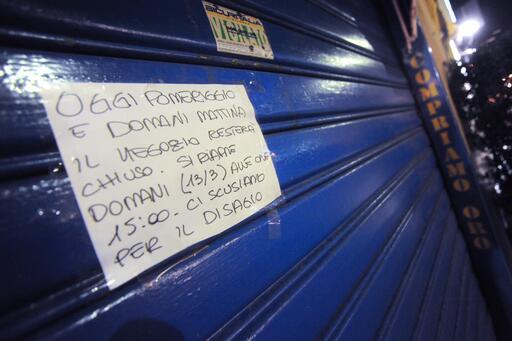 OGGI POMERIGGIO
E DOMANI MATTINA
IL NEGOZIO RESTERÀ
CHIUSO. SI RIAPRE
DOMANI (13/3) ALLE ORE
15:00. CI SCUSIAMO
PER IL DISAGIO
COMPRIAMO ORO